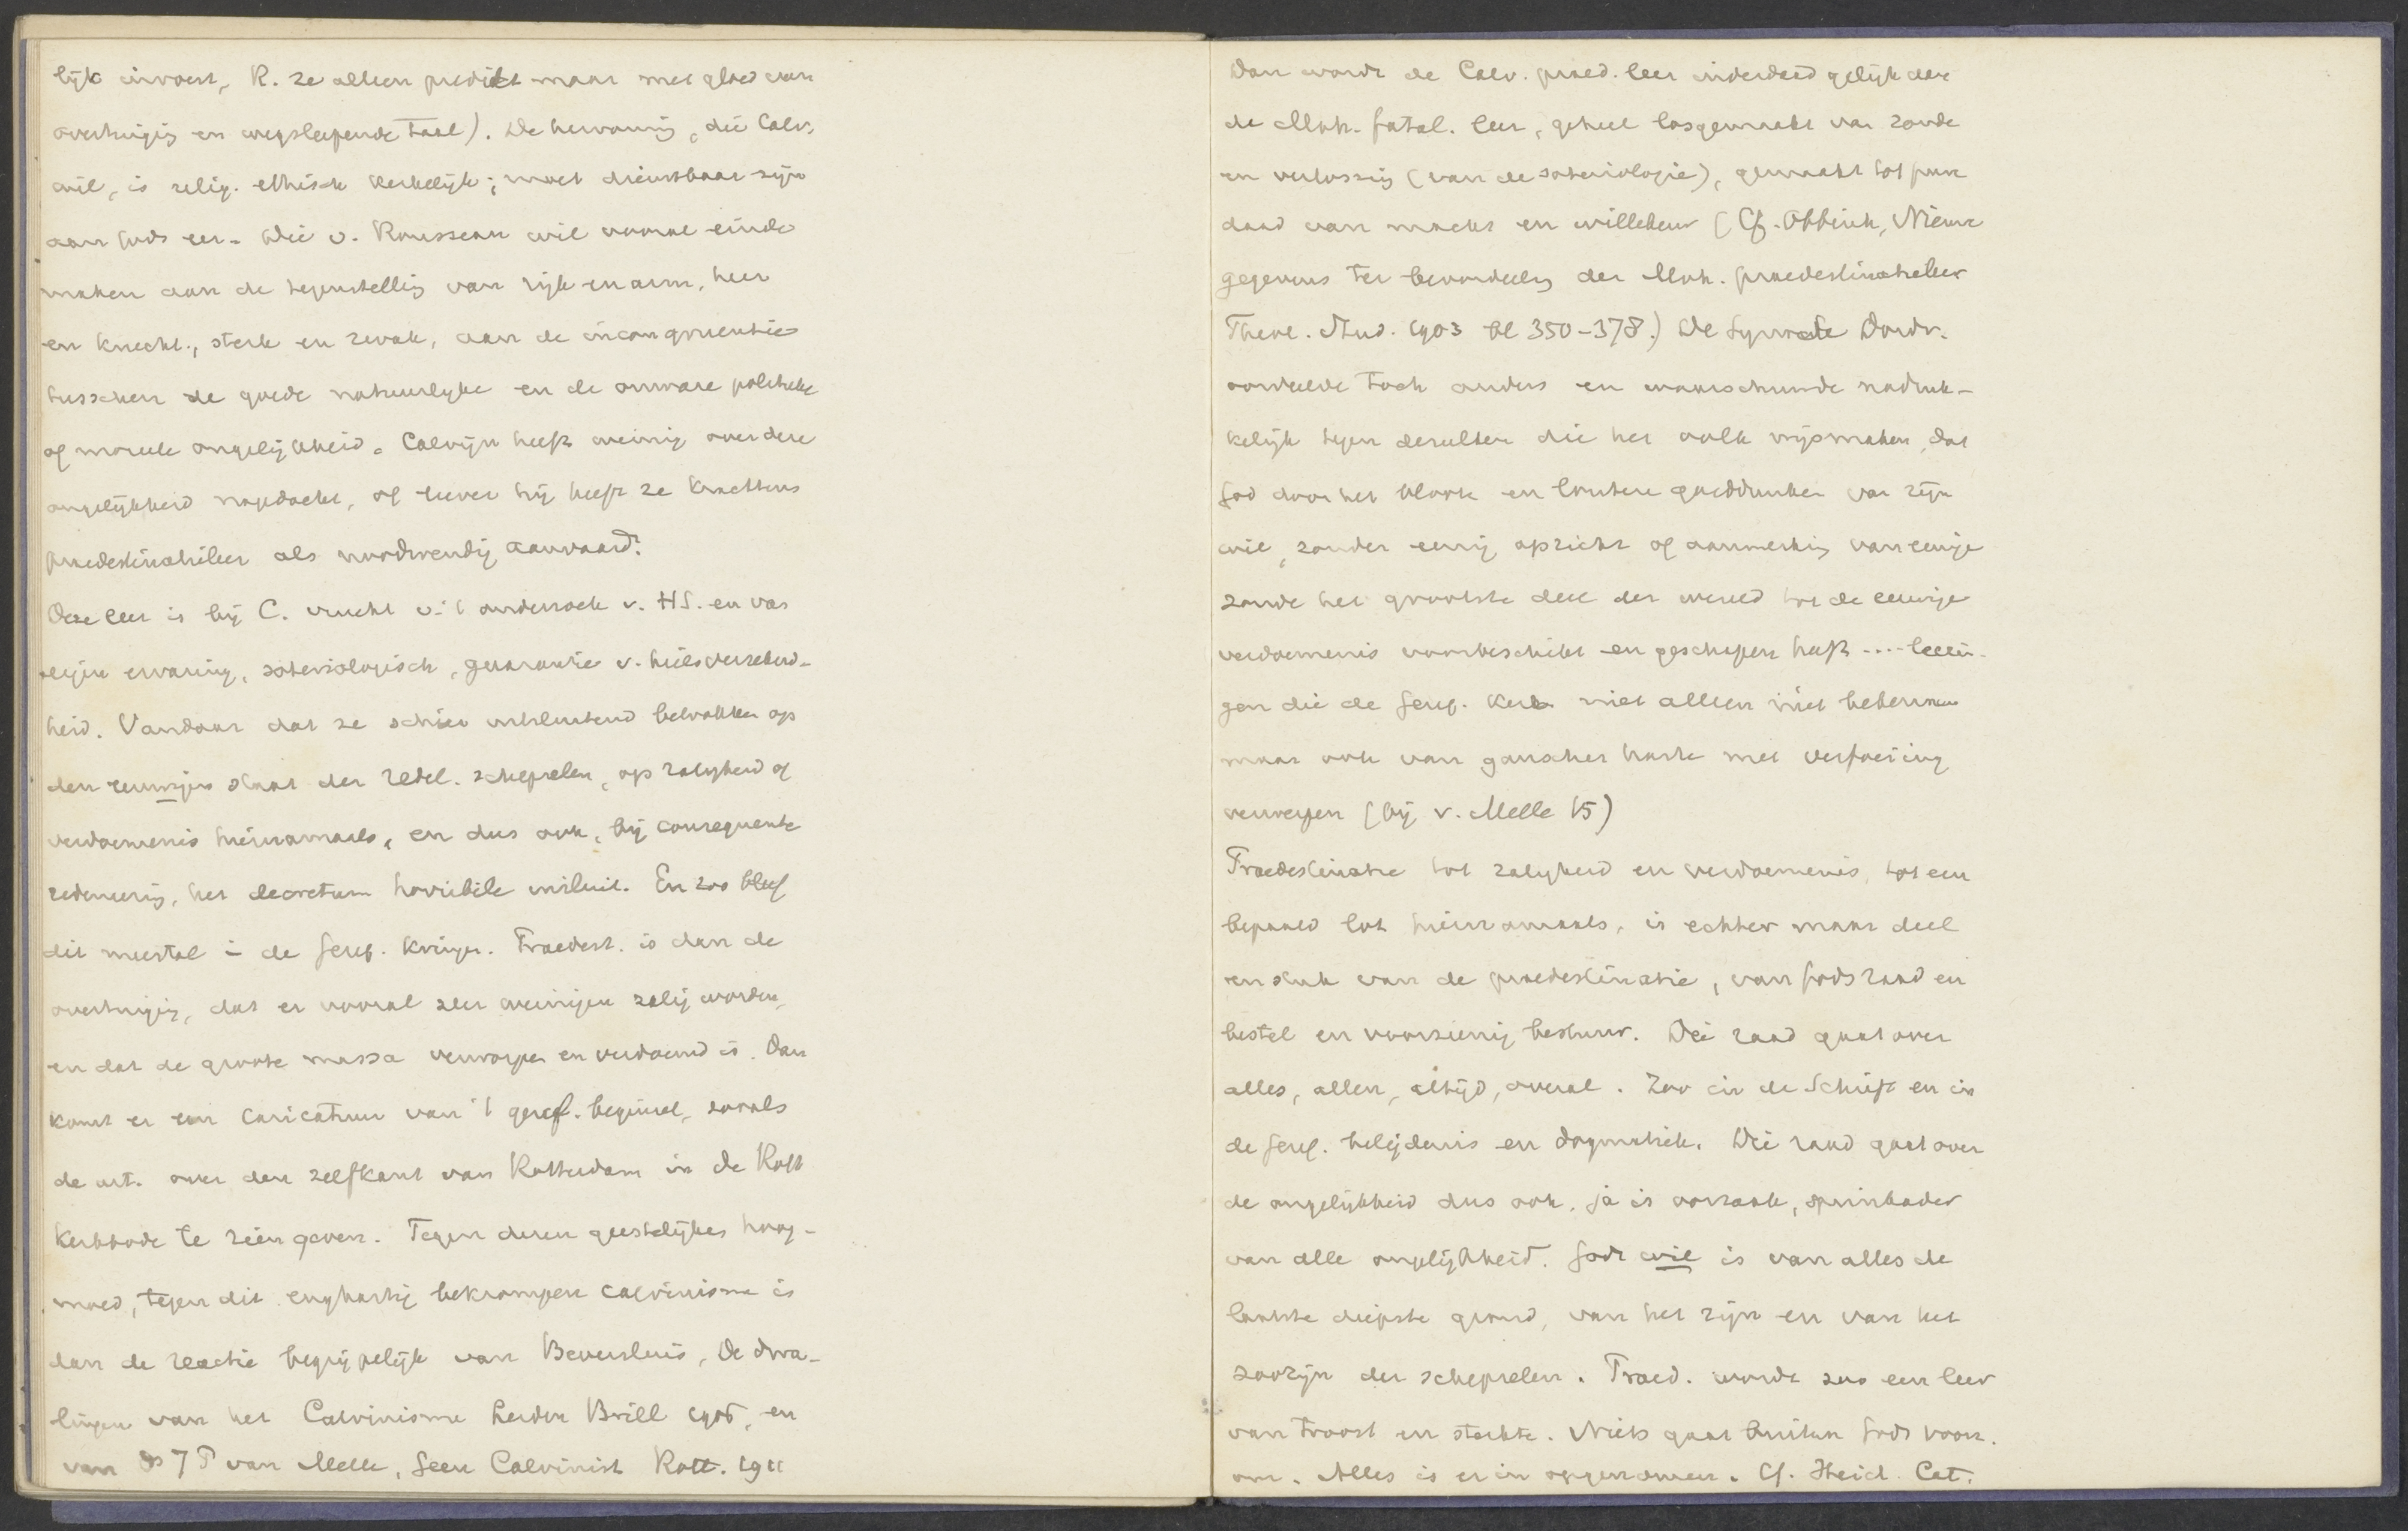 lijk invoert, R. ze alleen predikt maar met gloed van
overtuiging en wegsleepende taal). De hervorming, die Calv.
wil, is relig. ethisch kerkelijk; moet dienstbaar zijn
aan Gods eer. Die v. Rousseau wil vooral einde
maken aan de tegenstelling van rijk en arm, heer
en knecht, sterk en zwak, aan de incongruentie
tusschen de goede natuurlijke en de onware politieke
of moreele ongelijkheid. Calvijn heeft weinig over deze
ongelijkheid nagedacht, of liever hij heeft ze krachtens
praedestinatieleer als noodwendig aanvaard.
Deze leer is bij C. vrucht v. 't onderzoek v. HS. en van
eigen ervaring, soteriologisch, garantie v. heilsverzekerd-
heid. Vandaar dat ze schier uitsluitend betrokken op
den eeuwigen staat der redel. schepselen, op zaligheid of
verdoemenis hiernamaals, en dus ook, bij consequente
redeneering, het decretum horribile insluit. En zoo bleef
dit meestal in de Geref. kringen. Praedest. is dan de
overtuiging, dat er vooral zeer weinigen zalig worden,
en dat de groote massa verworpen en verdoemd is. Dan
komt er een caricatuur van 't geref. beginsel, zooals
de art. over den zelfkant van Rotterdam in De Rott
Kerkbode te zien geven. Tegen dezen geestelijken hoog-
moed, tegen dit enghartig bekrompen calvinisme is
dan de reactie begrijpelijk van Beversluis, De dwa-
lingen van het Calvinisme Leiden Brill 1906, en
van Ds J P van Melle, Geen Calvinist Rott. 1911
Dan wordt de Calv. praed. leer inderdaad gelijk aan
de Moh. fatal. leer, geheel losgemaakt van zonde
en verlossing (van de soteriologie), gemaakt tot pure
daad van macht en willekeur (Cf. Obbink, Nieuwe
gegevens ter beoordeeling der Moh. praedestinatieleer
Theol. Stud. 1903 bl 350-378.) De Synode Dordr.
oordeelde toch anders en waarschuwde nadruk-
kelijk tegen dezulken die het volk wijsmaken, dat
God door het bloote en loutere goeddunken van zijn
wil, zonder eenig opzicht of aanmerking van eenige
zonde het grootste deel der wereld tot de eeuwige
verdoemenis voorbeschikt en geschapen heeft .... leerin-
gen die de Geref. Kerk niet alleen niet bekennen
maar ook van ganscher harte met verfoeiing
verwerpen (bij v. Melle 15)
Praedestinatie tot zaligheid en verdoemenis, tot een
bepaald lot hiernamaals, is echter maar deel
en stuk van de praedestinatie, van Gods raad en
bestel en voorzienig bestuur. Die raad gaat over
alles, allen, altijd, overal. Zoo in de Schrift en in
de Geref. belijdenis en dogmatiek. Die raad gaat over
de ongelijkheid dus ook, ja is oorzaak, springader
van alle ongelijkheid. Gods wil is van alles de
laatste diepste grond, van het zijn en van het
zoozijn der schepselen. Praed. wordt zoo een leer
van troost en sterkte. Niets gaat buiten Gods voorz.
om. Alles is er in opgenomen. Cf. Heid. Cat.